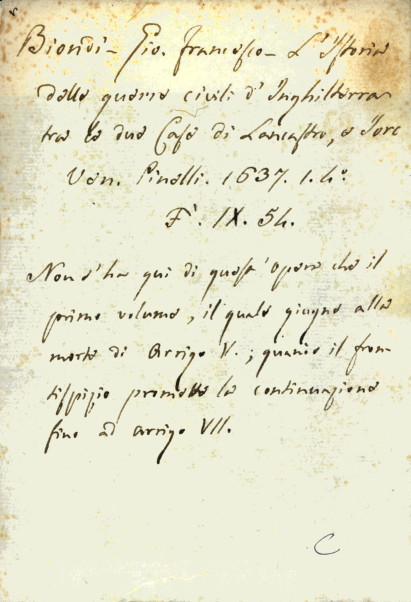 Biondi - Gio. Francesco - L'Istoria
delle guerre civili d'Inghilterra
tra le due Case di Lancastro, e Jorc
Ven. Pinelli. 1637. 1. 4°.
F. IX. 54.
Non s'ha qui di quest'opera che il
primo volume, il quale giugne alla
morte di Arrigo V.; quando il fron-
tispizio promette la continuazione
fino ad Arrigo VII.
C